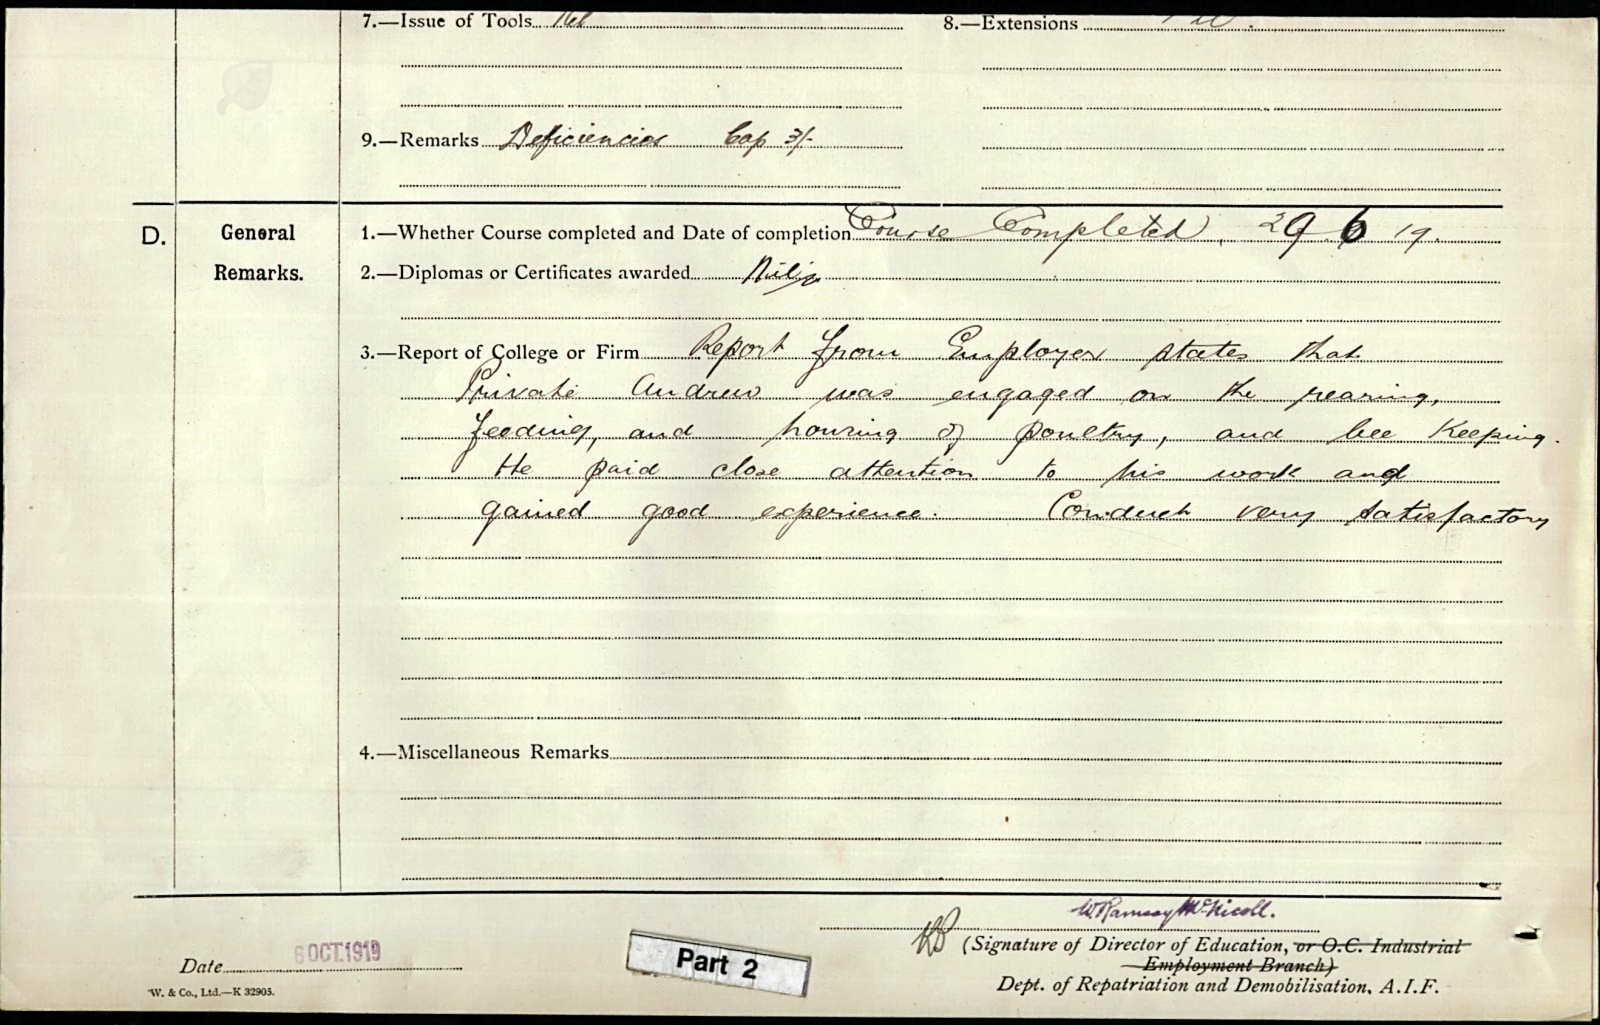 7.—Issue of Tools Nil
8.—Extensions Nil.
9.—Remarks Deficiencies Cap 3/-
D. General Remarks.
1.—Whether Course completed and Date of completion Course Completed, 29.6.19.
2.—Diplomas or Certificates awarded Nil
3.—Report of College or Firm Report from Employer states that
Private Andrew was engaged on the rearing,
feeding, and housing of poultry, and bee Keeping.
He paid close attention to his work and
gained good experience. Conduct very satisfactory
4.—Miscellaneous Remarks
W Ramsay McNicoll.
(Signature of Director of Education, or O.C. Industrial
Employment Branch)
Dept. of Repatriation and Demobilisation, A.I.F.
Date 6 OCT.1919
W. & Co., Ltd.—K 32905.
Part 2